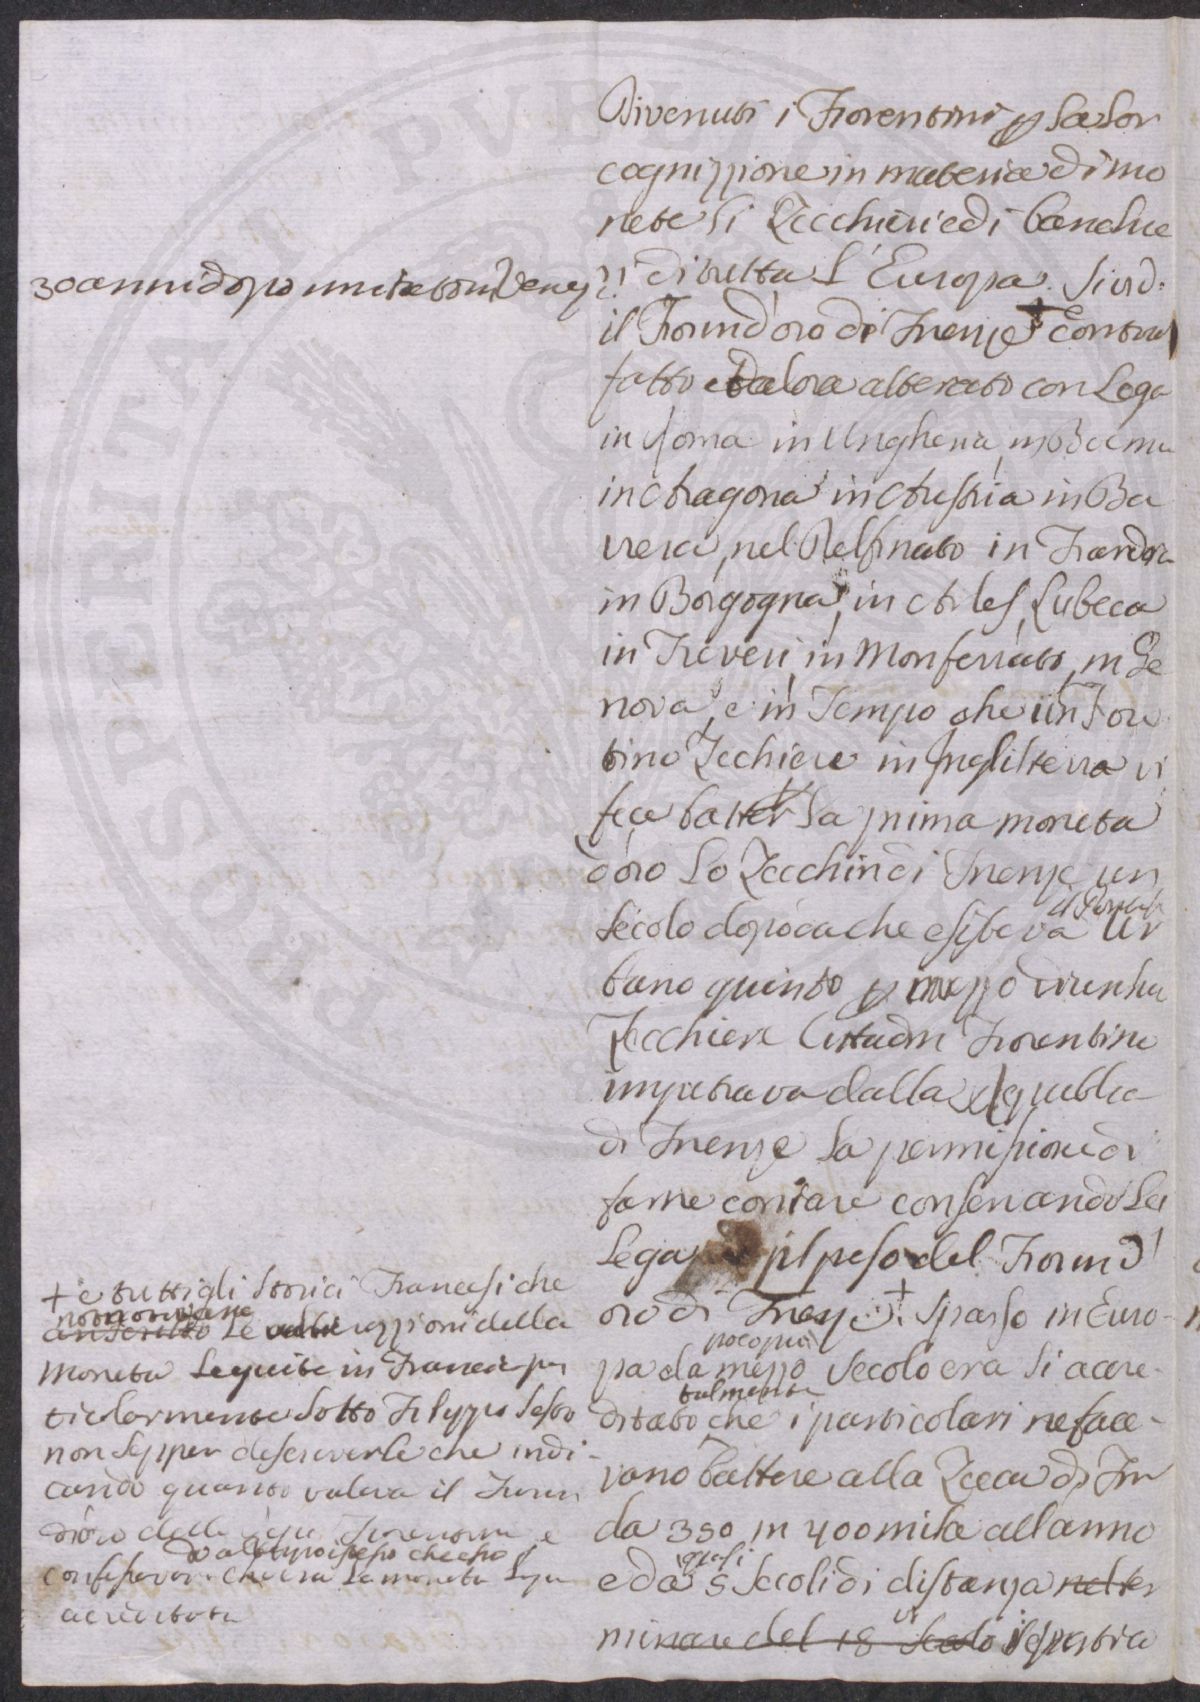 Divenuti i Fiorentini p la lor
cognizzione in materia di mo
nete li Zecchieri e di banchie
30 anni dopo imitato in Venez
ri di tutta l'Europa. Si vid.
il Fiorin d'oro di Firenze + contra
fatto e talora alterato con Lega
in Roma in Ungheria, in Boemia
in Aragona in Austria in Ba
viera, nel Delfinato in Fiandra
in Borgogna, in Arles, Lubeca
in Treveri, in Monferrato, in Ge
nova, e in Tempo che un Fioren
tino Zechiere in Inglilterra vi
fece batter la prima moneta
d'oro lo Zecchin di Firenze un
il Pontef
secolo dopo ca che esisteva Ur
bano quinto p mezzo di
Zecchiere Cittadin Fiorentino
impetrava dalla Republica
di Firenze la permissione di
farne coniare conservando la
Lega e il peso del Fiorin d'
oro di Firenze. + Sparso in Euro-
poco più
pa da mezzo secolo era si accre-
talmente
ditato che i particolari ne face-
vano battere alla Zecca di Fir
da 350 in 400 mila all anno
quasi
e da 5 secoli di distanza nel ter
minare del 18 secolo
+ e tutti gli Storici Francesi che
non
le della
Moneta seguite in Francia par
ticolarmente sotto Filippo Sesto
non sepper descriverle che indi-
cando quanto valeva il Fiorin
d'oro della Fiorentina e
confessavano che era la moneta
accreditata